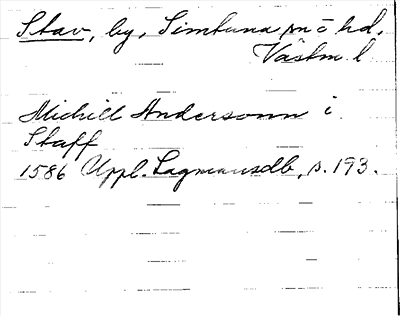 Stav, by, Simtuna sn o hd,
Västm l
Michill Andersonn i
Staff
1586 Uppl. Lagmansdb, s. 193.